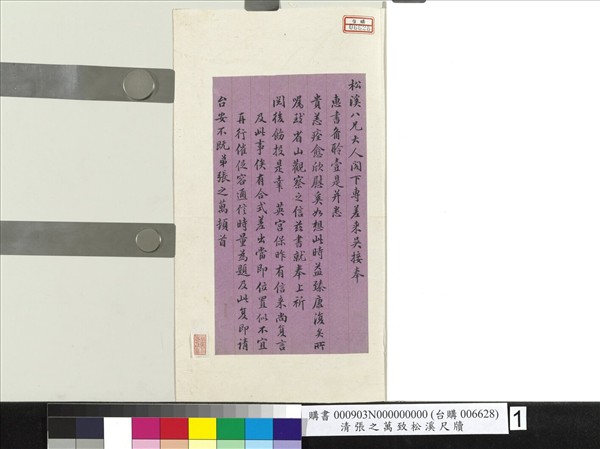 松溪八兄大人閣下專差來吳接奉
惠書備聆壹是并悉
貴恙痊愈欣慰奚如想此時益臻康復矣所
囑致省山觀察之信茲書就奉上祈
閱後飭投是幸 英宮保昨有信來尚复言
及此事俟有合式差出當即位置似不宜
再行催促容通信時量為題及此复即請
台安不既弟張之萬頓首
台購
006628
購書 000903N000000000 (台購 006628)
清張之萬致松溪尺牘
1